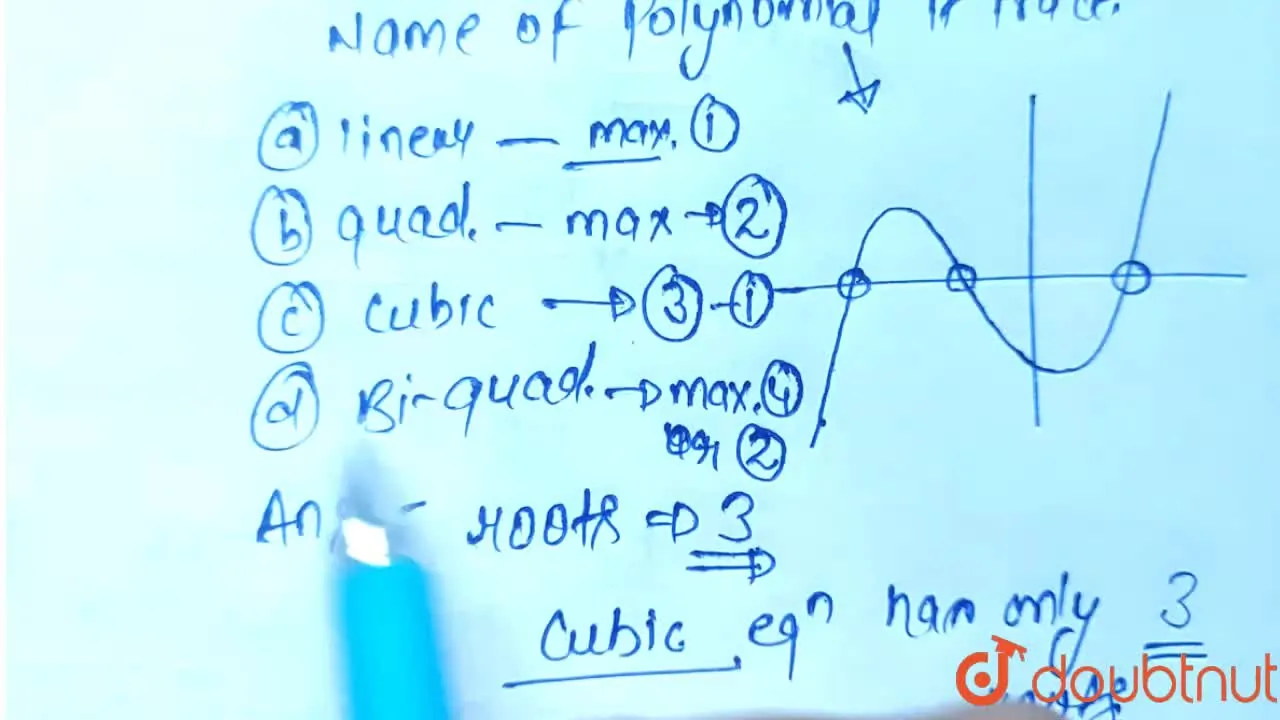 Name of Polynomial
(a) linear — max. (1)
(b) quad. — max → (2)
(c) cubic → (3) - (1)
(d) Bi-quad. → max. (4)
or (2)
An - roots ⇒ 3
Cubic eqn has only 3
doubtnut